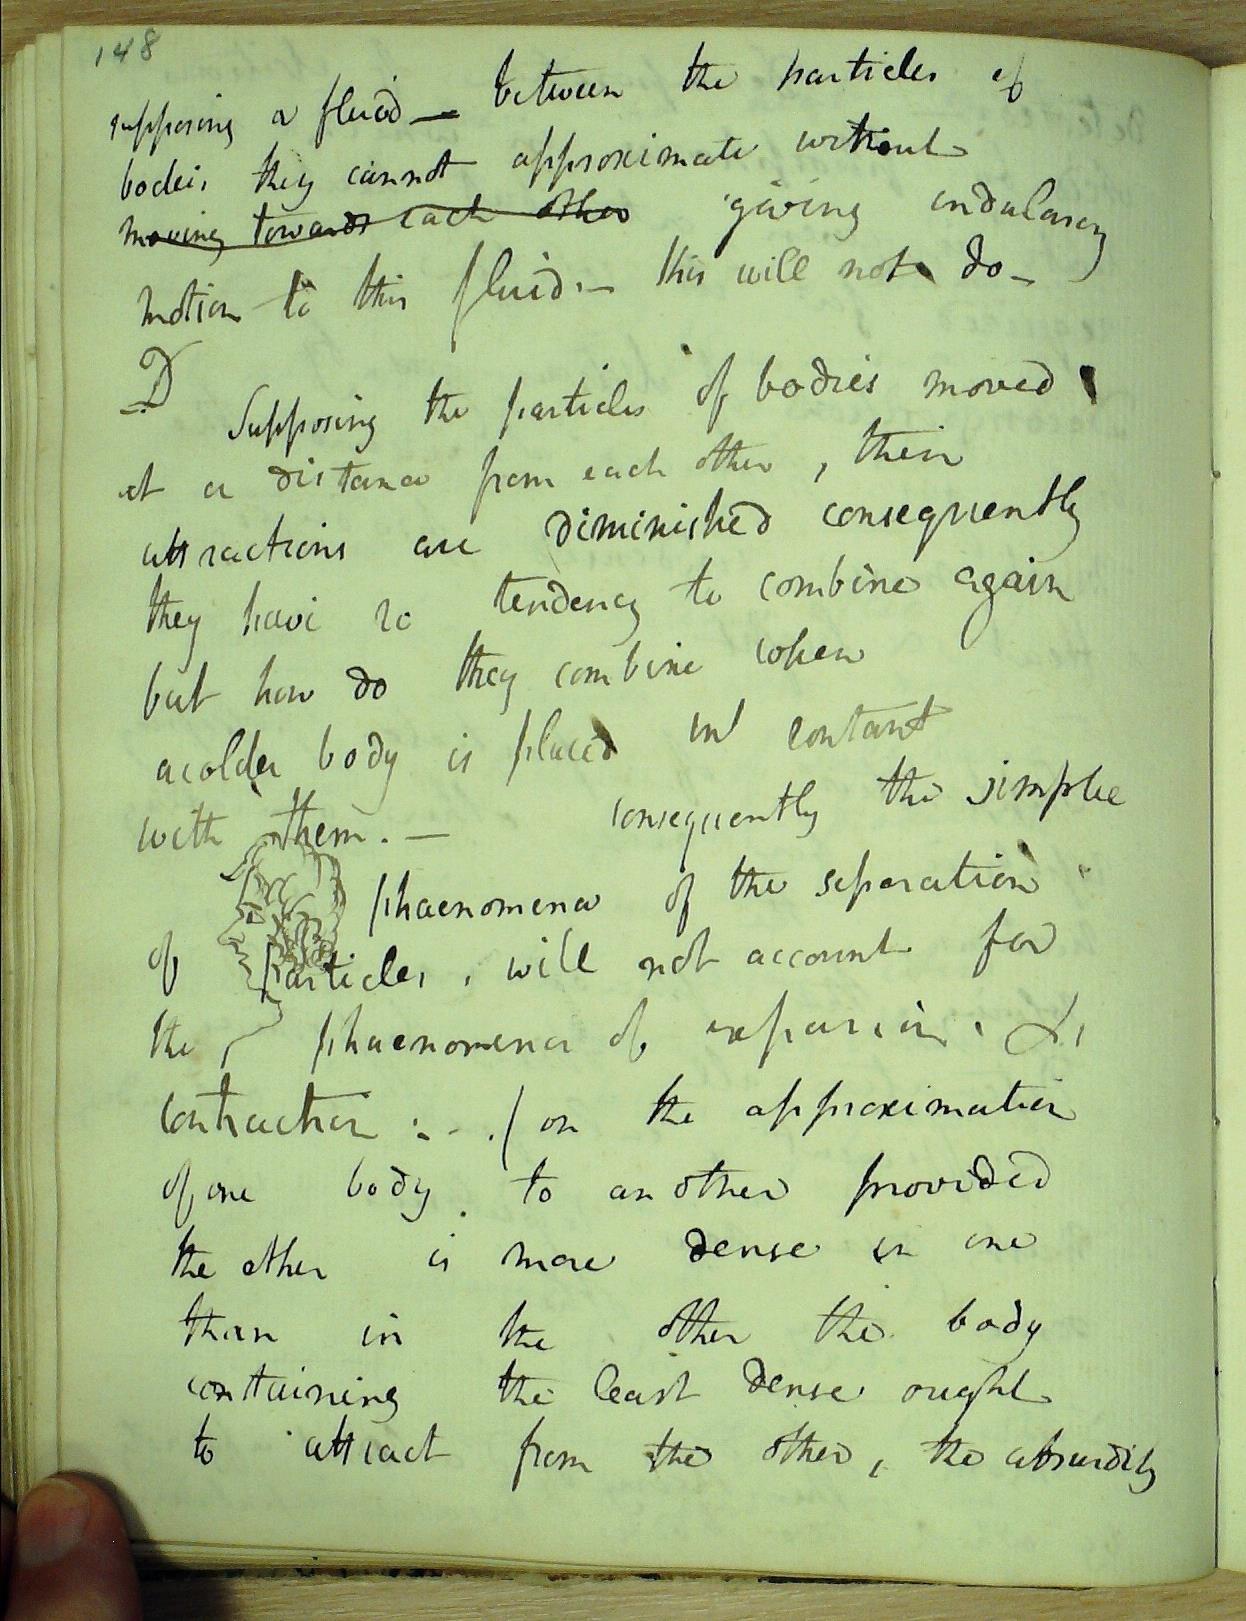 148
supposing a fluid — between the particles of
bodies they cannot approximate without
moving towards each other giving undulary
motion to this fluid. — this will not do —
D
Supposing the particles of bodies moved
at a distance from each other, their
attractions are diminished consequently
they have no tendency to combine again
but how do they combine when
a colder body is placed in contact
with them. — consequently the simple
phaenomena of the separation
of particles, will not account for
the phaenomena of expansion &
contraction :- . / on the approximation
of one body to another provided
the ether is more dense in one
than in the other the body
containing the least dense ought
to attract from the other, the absurdity